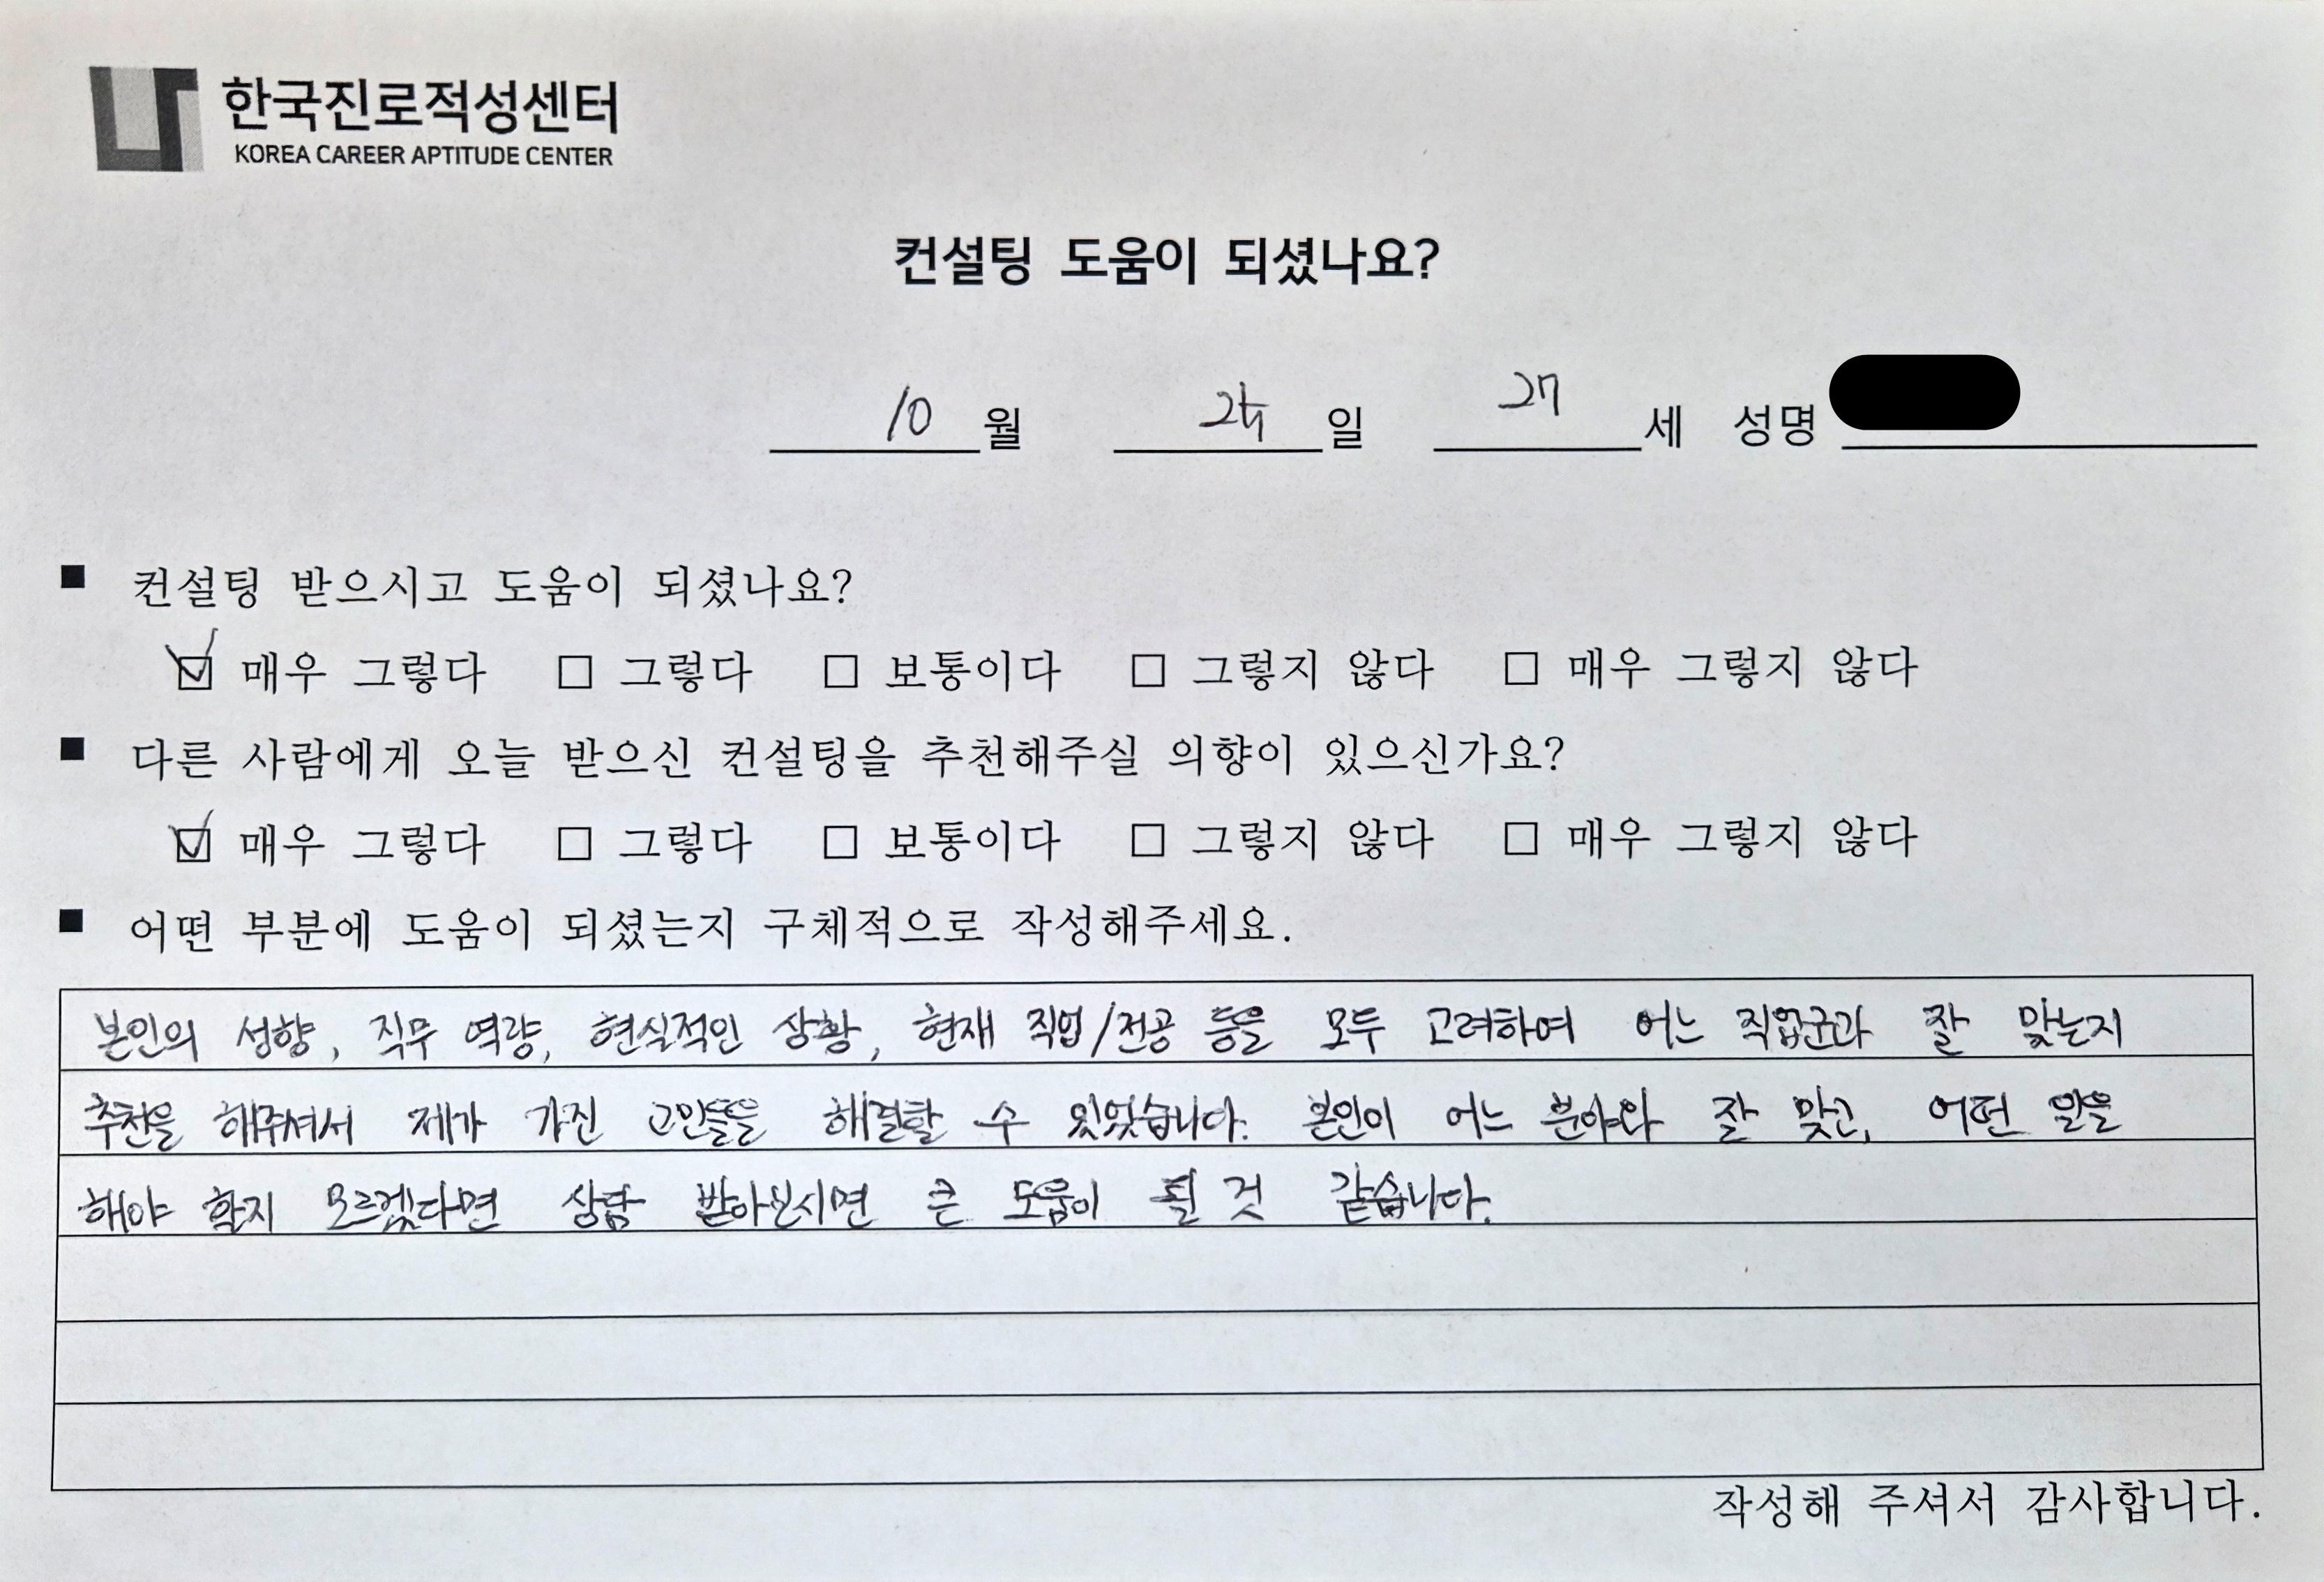 한국진로적성센터
KOREA CAREER APTITUDE CENTER
컨설팅 도움이 되셨나요?
10 월 일 27 세 성명
■ 컨설팅 받으시고 도움이 되셨나요?
☑ 매우 그렇다 □ 그렇다 □ 보통이다 □ 그렇지 않다 □ 매우 그렇지 않다
■ 다른 사람에게 오늘 받으신 컨설팅을 추천해주실 의향이 있으신가요?
☑ 매우 그렇다 □ 그렇다 □ 보통이다 □ 그렇지 않다 □ 매우 그렇지 않다
■ 어떤 부분에 도움이 되셨는지 구체적으로 작성해주세요.
본인의 성향, 직무 역량, 현실적인 상황, 현재 직업/전공 등을 모두 고려하여 어느 직업군과 잘 맞는지
추천을 해주셔서 제가 가진 고민들을 해결할 수 있었습니다. 본인이 어느 분야와 잘 맞고, 어떤 일을
해야 할지 모르겠다면 상담 받아보시면 큰 도움이 될 것 같습니다.
작성해 주셔서 감사합니다.